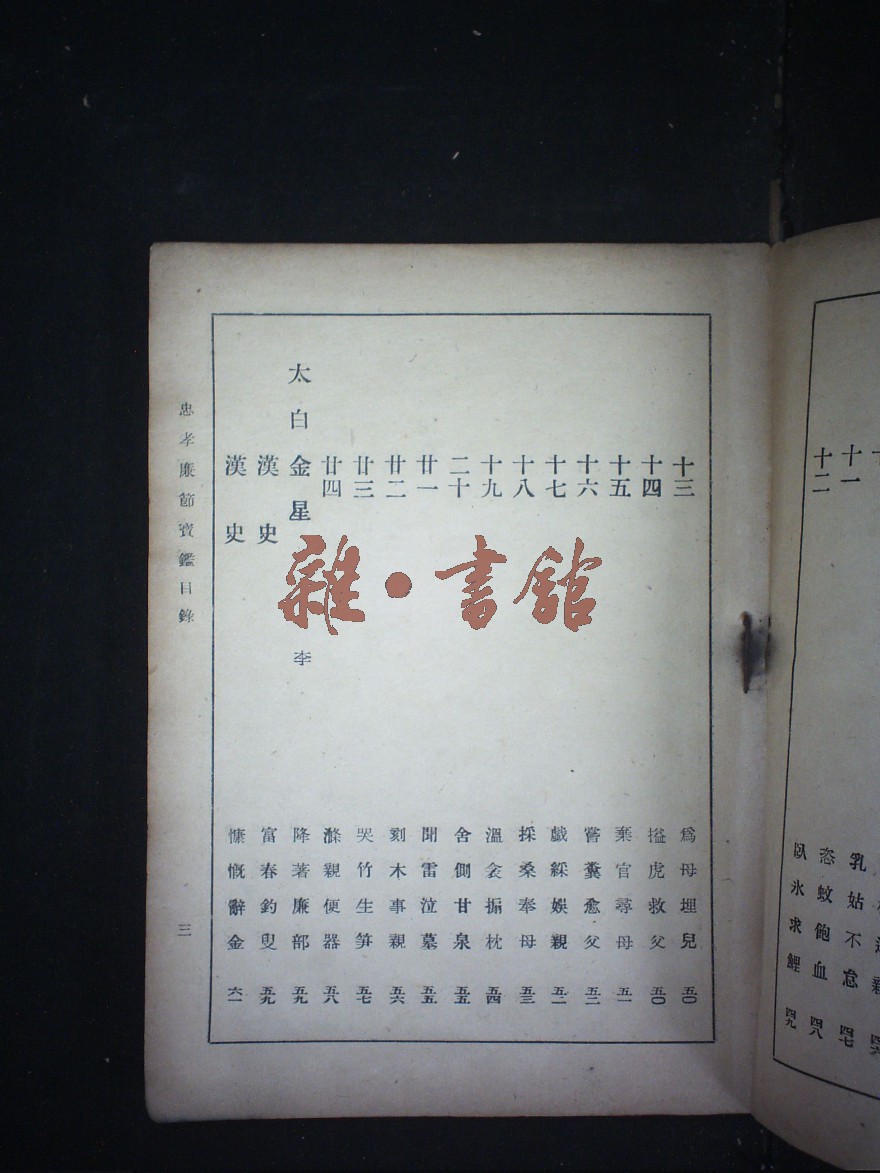 十二 臥冰求鯉 四九
十一 恣蚊飽血 四八
乳姑不怠 四七
十三 為母埋兒 五〇
十四 搤虎救父 五〇
十五 棄官尋母 五一
十六 嘗糞愈父 五二
十七 戲綵娛親 五二
十八 採桑奉母 五三
十九 溫衾搧枕 五四
二十 舍側甘泉 五五
廿一 聞雷泣墓 五五
廿二 刻木事親 五六
廿三 哭竹生筍 五七
廿四 滌親便器 五八
太白金星 李 降著廉部 五九
漢史 富春釣叟 五九
漢史 慷慨辭金 六一
忠孝廉節寶鑑目錄
三
雜·書館